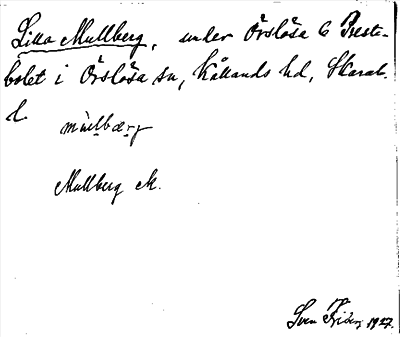 Lilla Mullberg, under Örslösa 6 Preste-
bolet i Örslösa sn, Kållands hd, Skarab.
l.
Mullberg Ek.
Sven Friberg 1927.